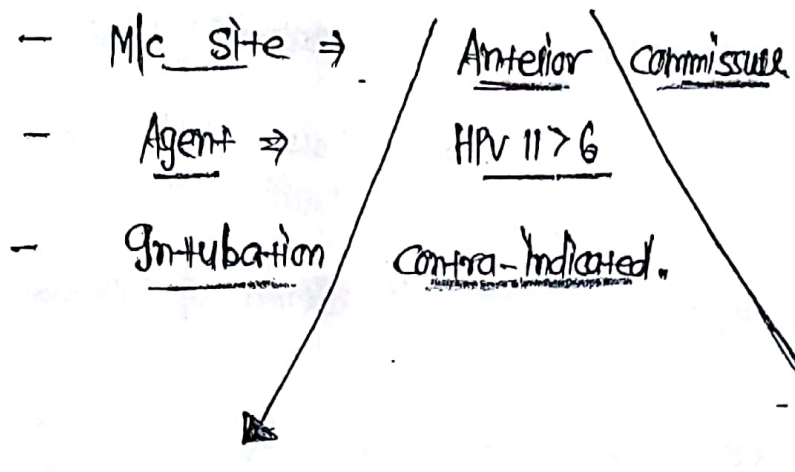 – M/c Site ⇒ Anterior Commissure
– Agent ⇒ HPV 11 > 6
– Intubation Contra-indicated.